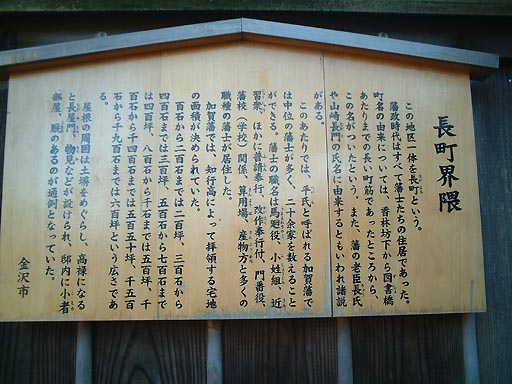 長町界隈
この地区一体を長町という。
藩政時代はすべて藩士たちの住居であった。
町名の由来については、香林坊下から図書橋
あたりまでの長い町筋であったところから、
この名がついたという。また、藩の老臣長氏
や山崎長門の氏名に由来するともいわれ諸説
がある。
このあたりでは、平士と呼ばれる加賀藩で
は中位の藩士が多く、二十余家を数えること
ができる。藩士の職名は馬廻役、小姓組、近
習衆、ほかに普請奉行、改作奉行付、門番役、
藩校（学校）関係、算用場、産物方と多くの
職種の藩士が居住した。
加賀藩では、知行高によって拝領する宅地
の面積が決められていた。
百石から二百石までは二百坪、三百石から
四百石までは三百坪、五百石から七百石まで
は四百坪、八百石から千石までは五百坪、千
百石から千四百石までは五百五十坪、千五百
石から千九百石までは六百坪という広さであ
る。
屋根の周囲は土塀をめぐらし、高禄になる
と長屋門、物見などが設けられ、邸内に小者
部屋、厩のあるのが通例となっていた。
金沢市